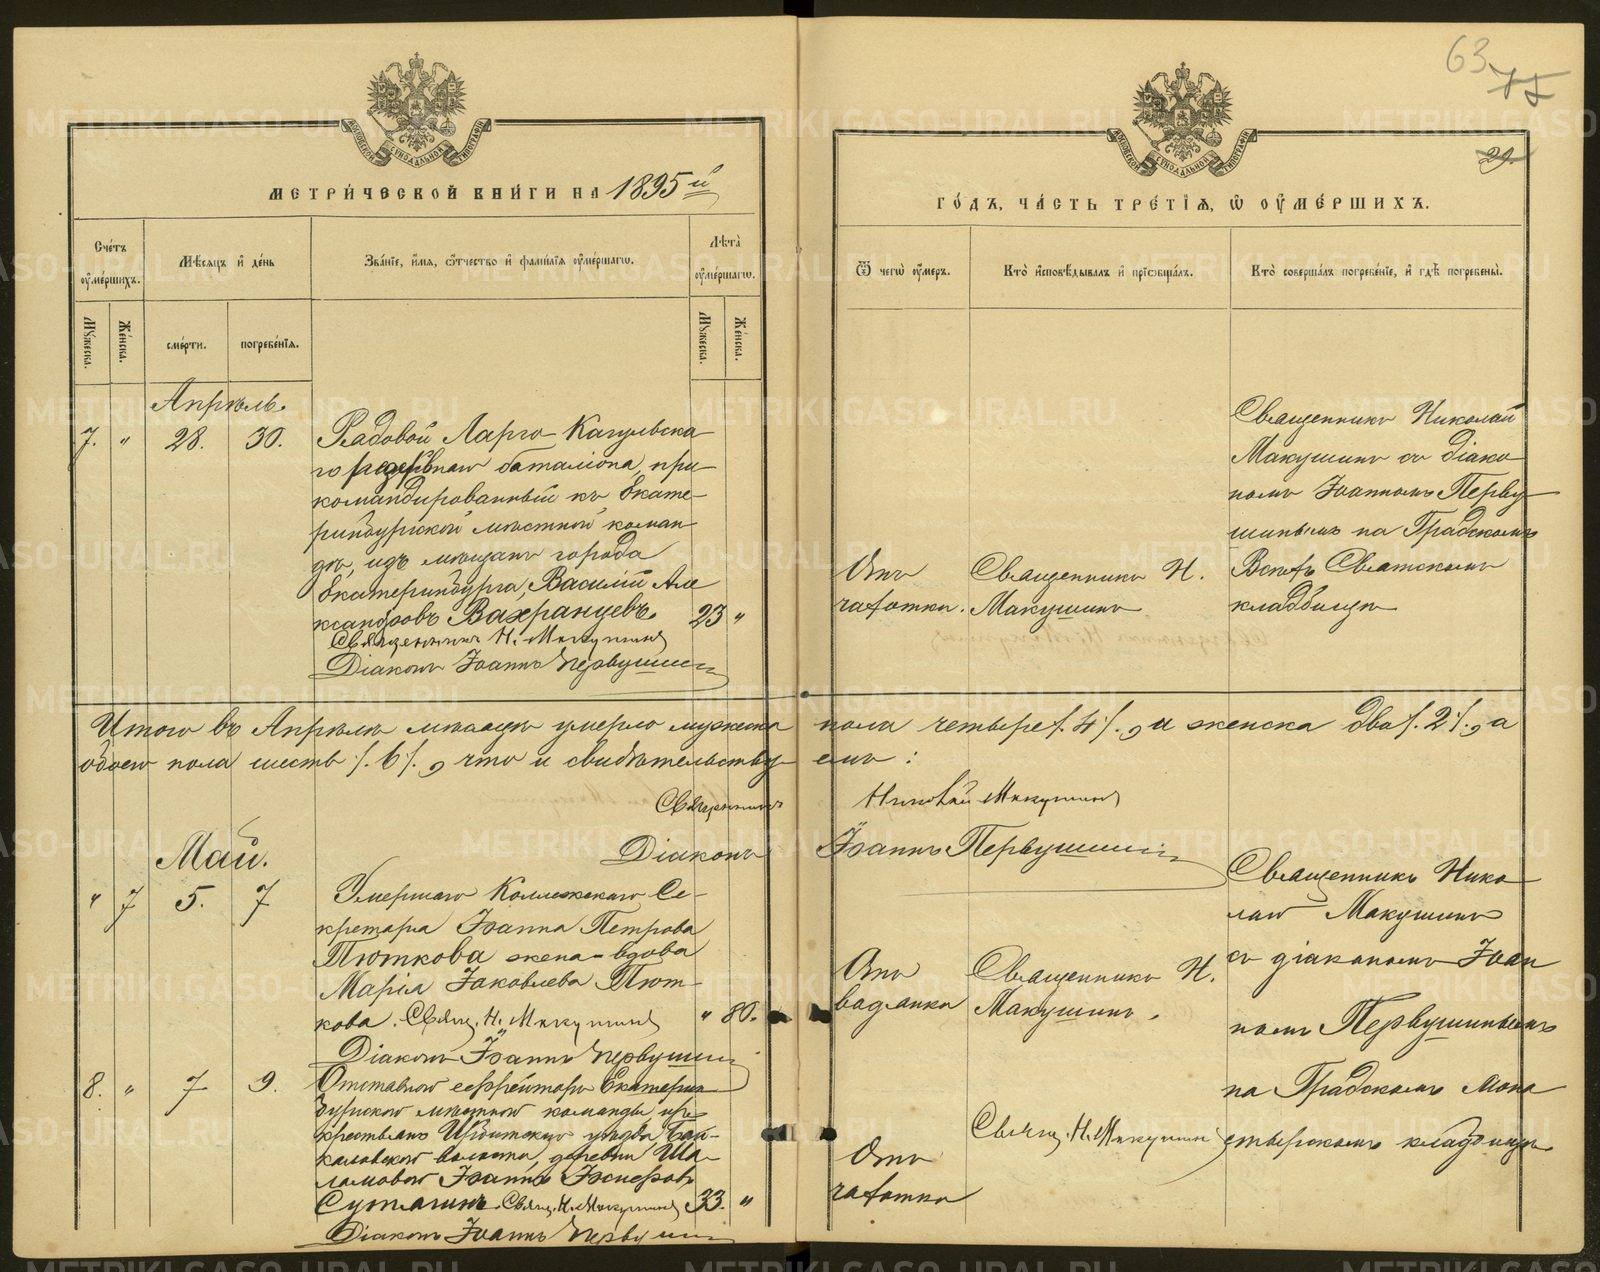 63
29.
МОСКОВСКОЙ СѴНОДАЛЬНОЙ ТИПОГРАФІИ
МОСКОВСКОЙ СѴНОДАЛЬНОЙ ТИПОГРАФІИ
МЕТРИ́ЧЕСКОЙ КНИ́ГИ НА 1895й
ГО́ДЪ, ЧА́СТЬ ТРЕ́ТІѦ, Ѡ ОУ҆МЕ́РШИХЪ.
Сче́тъ оу҆ме́ршихъ.
Мѣ́сяцъ и҆ де́нь
Зва́ніе, и҆́мя, ѻ҆́тчество и҆ фами́лія оу҆ме́ршагѡ.
Лѣта̀ оу҆ме́ршагѡ.
Ѿ чегѡ̀ оу҆́меръ.
Кто̀ и҆сповѣ́дывалъ и҆ прїѡбща́лъ.
Кто̀ соверша́лъ погребе́ніе, и҆ гдѣ̀ погребены̀.
Му́жеска.
Же́нска.
сме́рти.
погребе́нїя.
Му́жеска.
Же́нска.
Апрѣль.
7. " 28. 30.
Рядовой Ларго-Кагульска
го резервнаго баталіона, при
командированный къ Екате-
ринбургской мѣстной коман
дѣ, изъ мѣщанъ города
Екатеринбурга, Василій Але
ксандровъ Вахранцевъ. 23 "
Священникъ Н. Макушинъ
Діаконъ Іоаннъ Первушинъ
Отъ
чахотки.
Священникъ Н.
Макушинъ
Священникъ Николай
Макушинъ съ діако
номъ Іоанномъ Перву
шинымъ на Градскомъ
Всѣхъ Святскомъ
кладбищѣ
Итого въ Апрѣлѣ мѣсяцѣ умерло мужеска пола четыре /. 4 /., и женска два /. 2 /., а
обоего пола шесть /. 6 /., что и свидѣтельствуемъ:
Священникъ Николай Макушинъ
Діаконъ Іоаннъ Первушинъ
Май.
" 7 5. 7
Умершаго Коллежскаго Се-
кретаря Іоанна Петрова
Тюткова жена-вдова
Марія Іаковлева Тют-
кова. Свящ. Н. Макушинъ " 80.
Діаконъ Іоаннъ Первушинъ
Отъ
водянки
Священникъ Н.
Макушинъ.
Священникъ Нико
лай Макушинъ
съ діакономъ Іоан
номъ Первушинымъ
на Градскомъ Мона
стырскомъ кладбищѣ
8. " 7 9.
Отставной ефрейторъ Екатерин
бургской мѣстной команды изъ
крестьянъ Ирбитскаго уѣзда, Бай-
каловской волости, деревни Ша-
ламовой Іоаннъ
Сутягинъ. Свящ. Н. Макушинъ 33. "
Діаконъ Іоаннъ Первушинъ
Отъ
чахотки
Свящ. Н. Макушинъ
METRIKI.GASO-URAL.RU